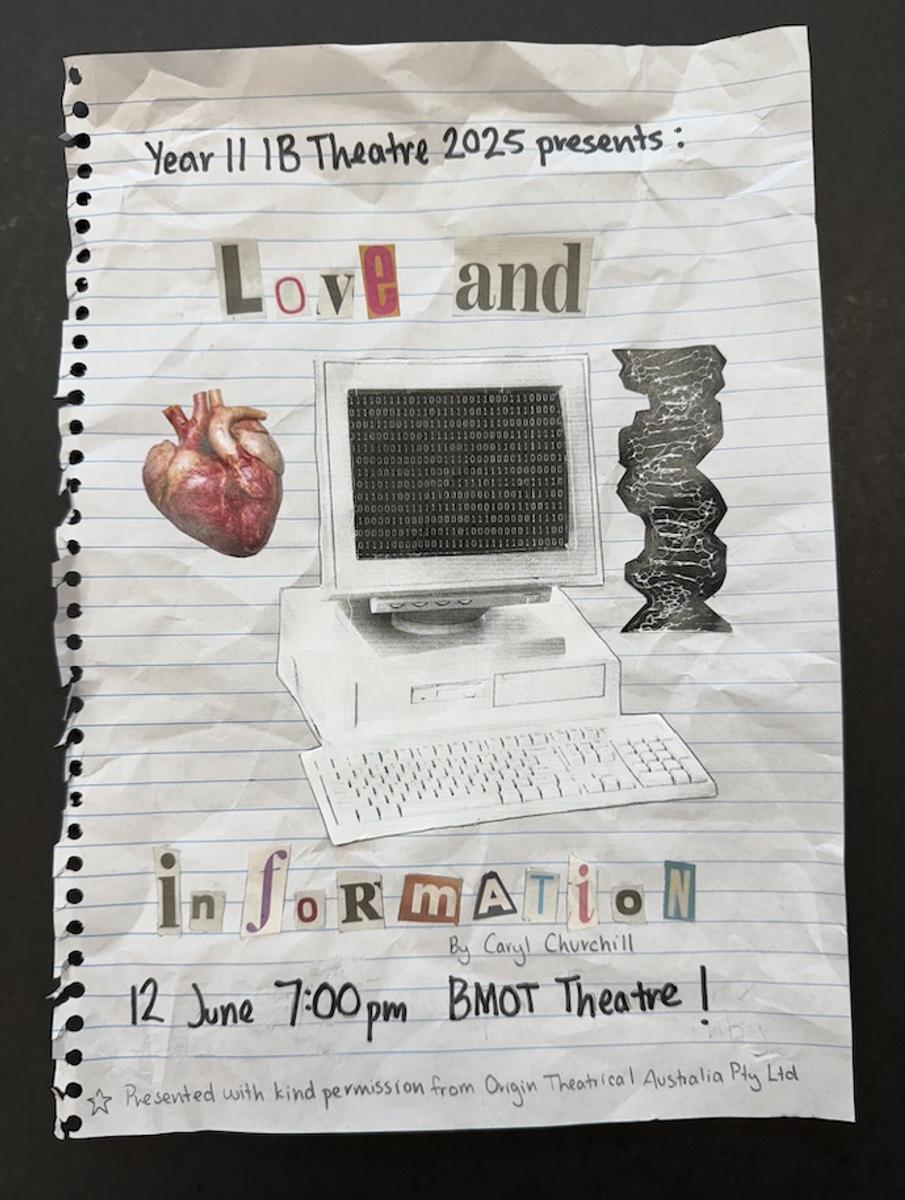 Year 11 IB Theatre 2025 presents:
Love and
inforMATioN
By Caryl Churchill
12 June 7:00pm BMOT Theatre!
☆ Presented with kind permission from Origin Theatrical Australia Pty Ltd